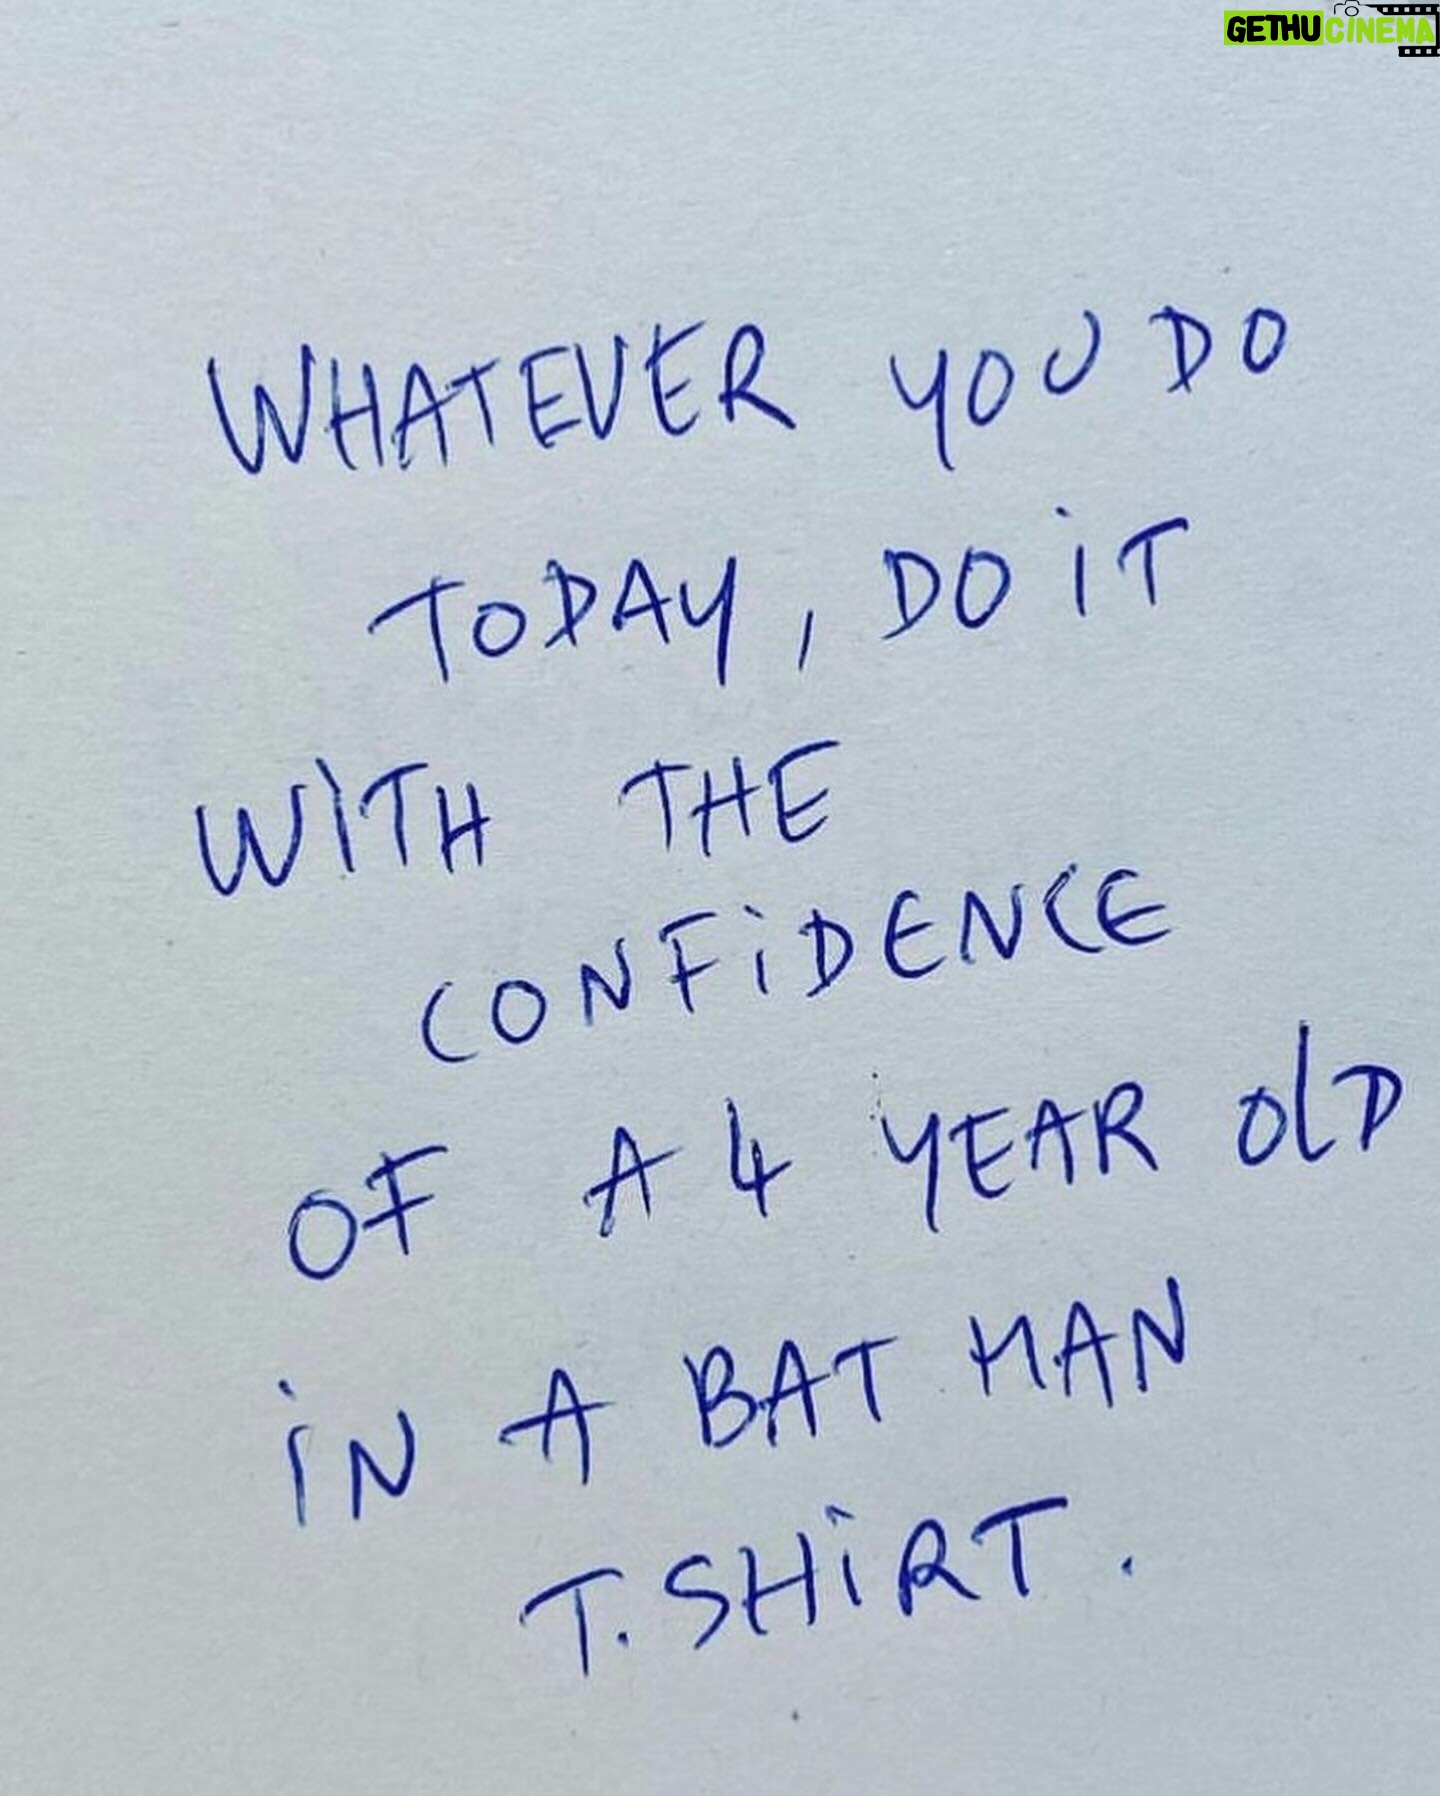 GETHUCINEMA
WHATEVER YOU DO
TODAY, DO iT
WiTH THE
CONFiDENCE
OF A 4 YEAR OlD
iN A BAT MAN
T.SHiRT.